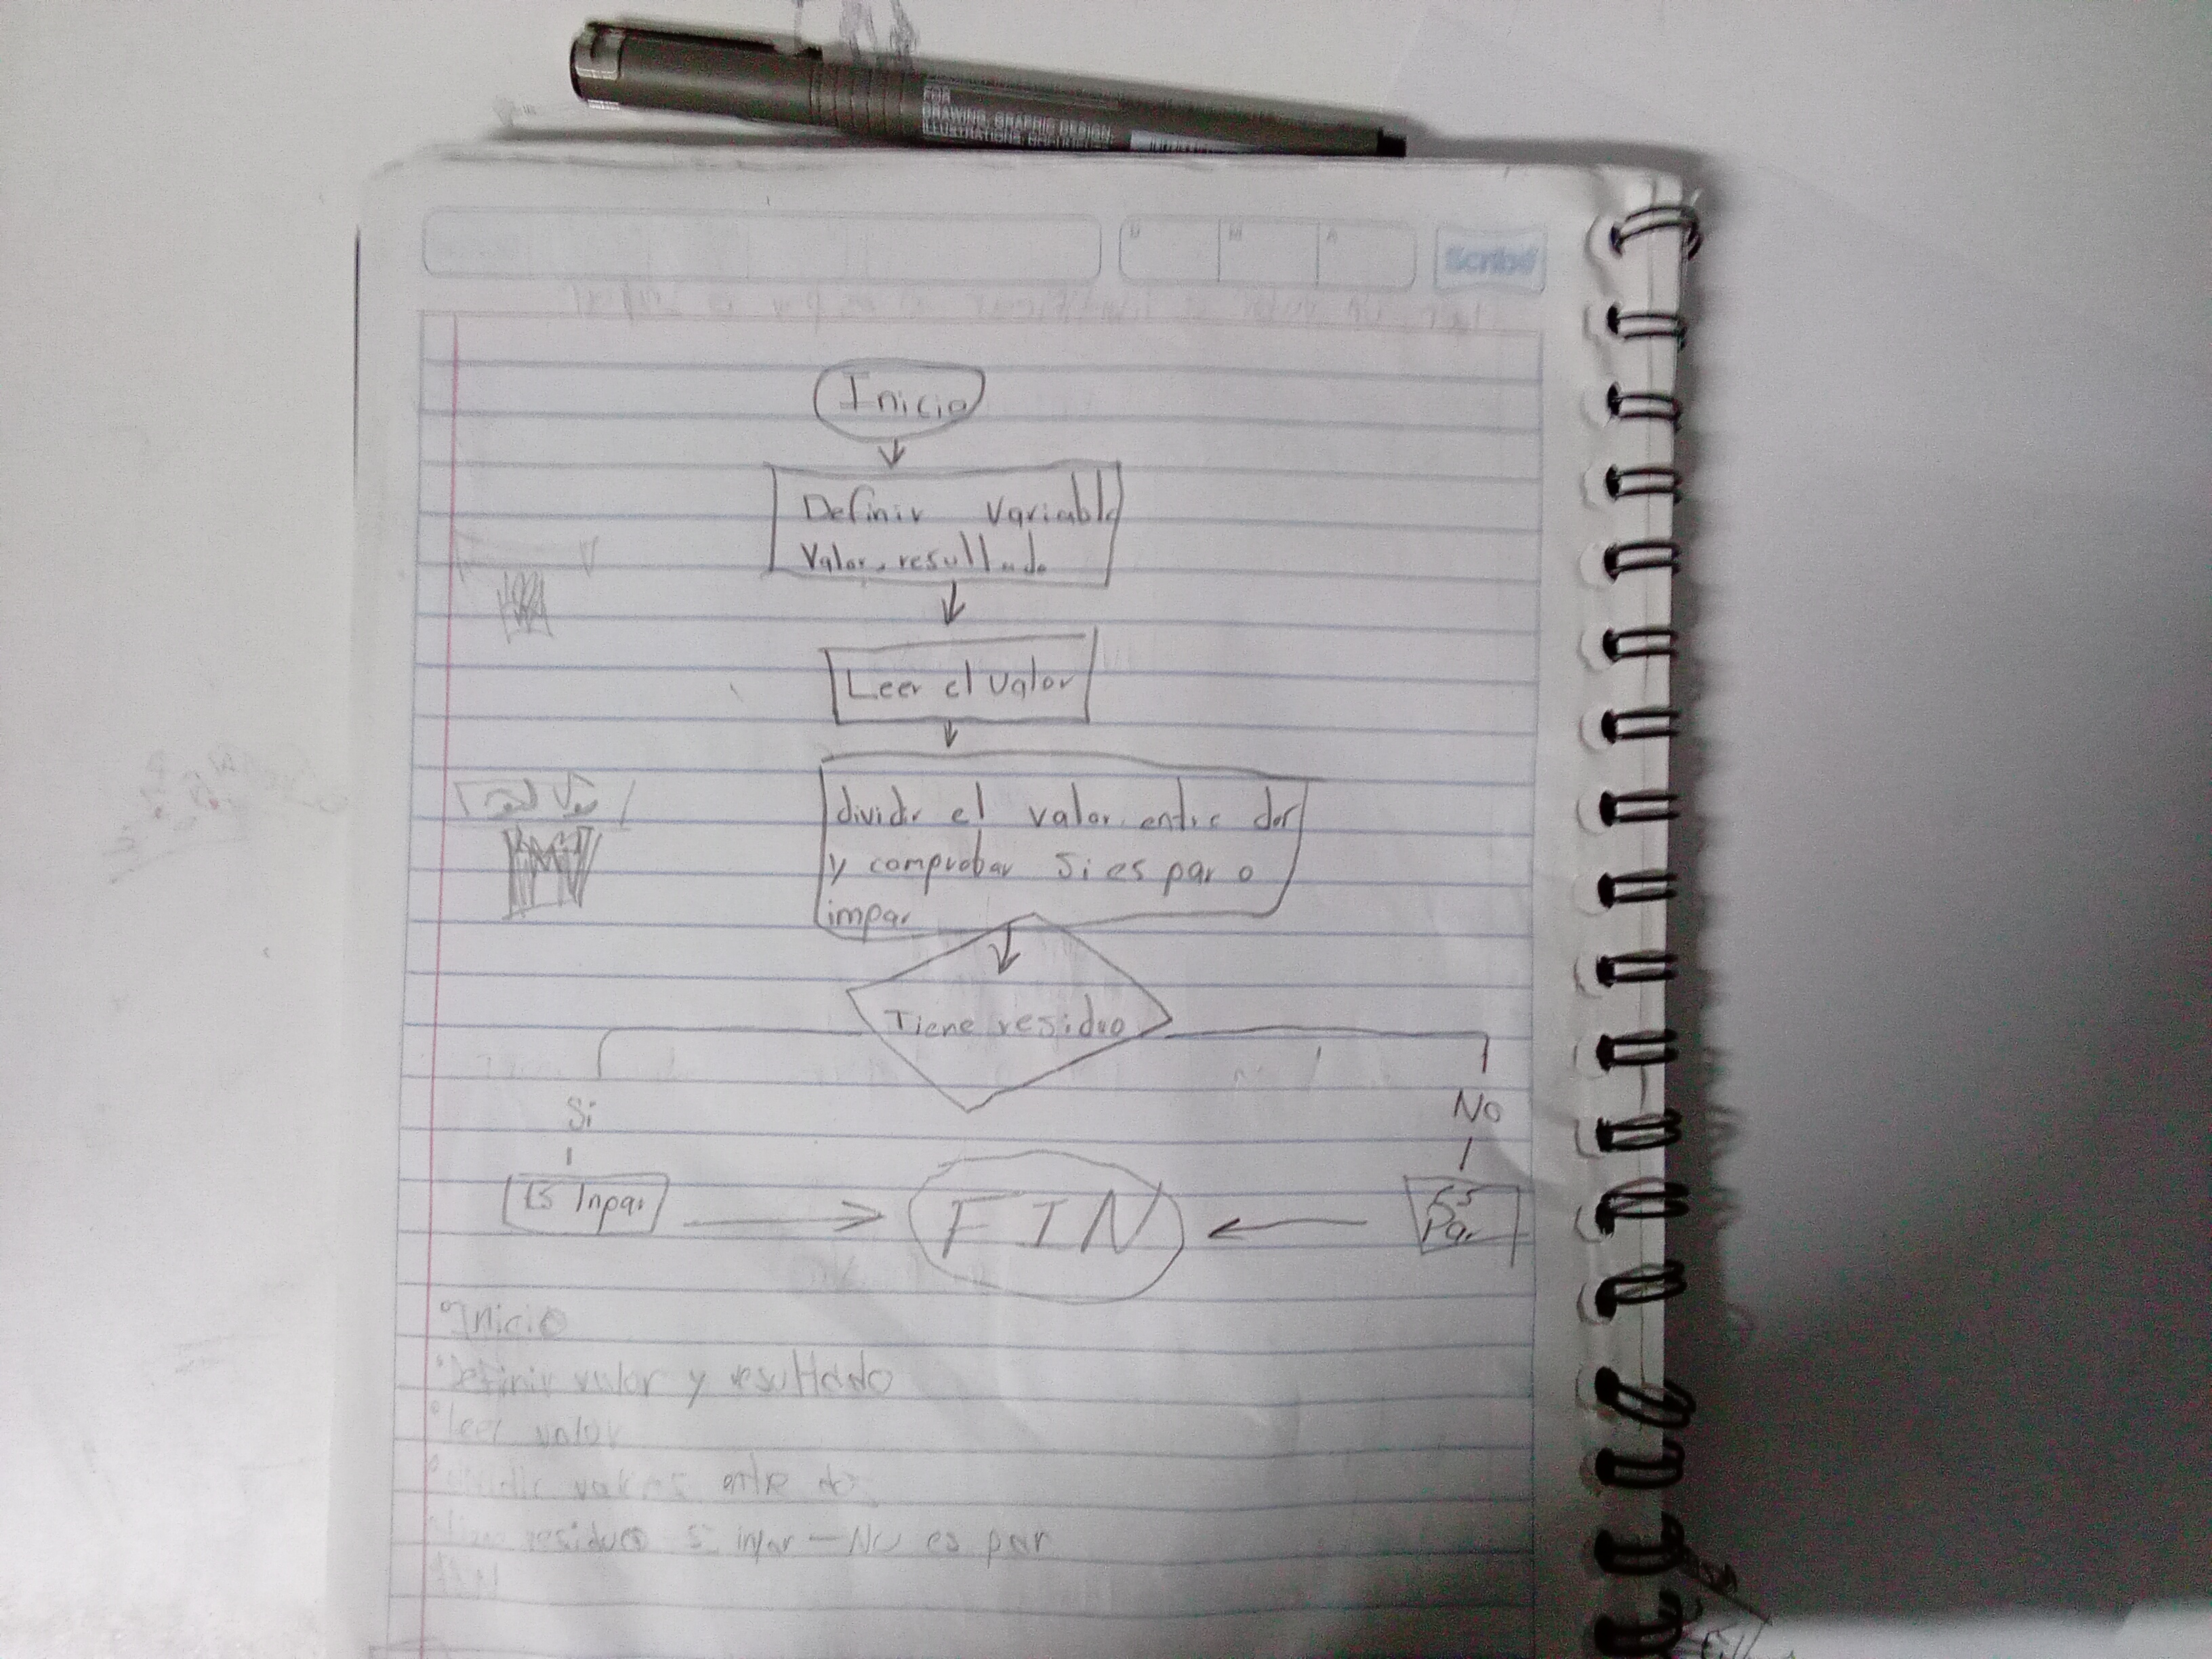 DRAWING, GRAPHIC DESIGN,
D M A Scribe
Inicio
Definir Variable
Valor, resultado
Leer el valor
dividir el valor entre dos
y comprobar si es par o
impar
Tiene residuo
Si No
Es Inpar FIN Es
Par
Inicio
Definir valor y resultado
leer valor
entre dos
residuo inpar — No es par